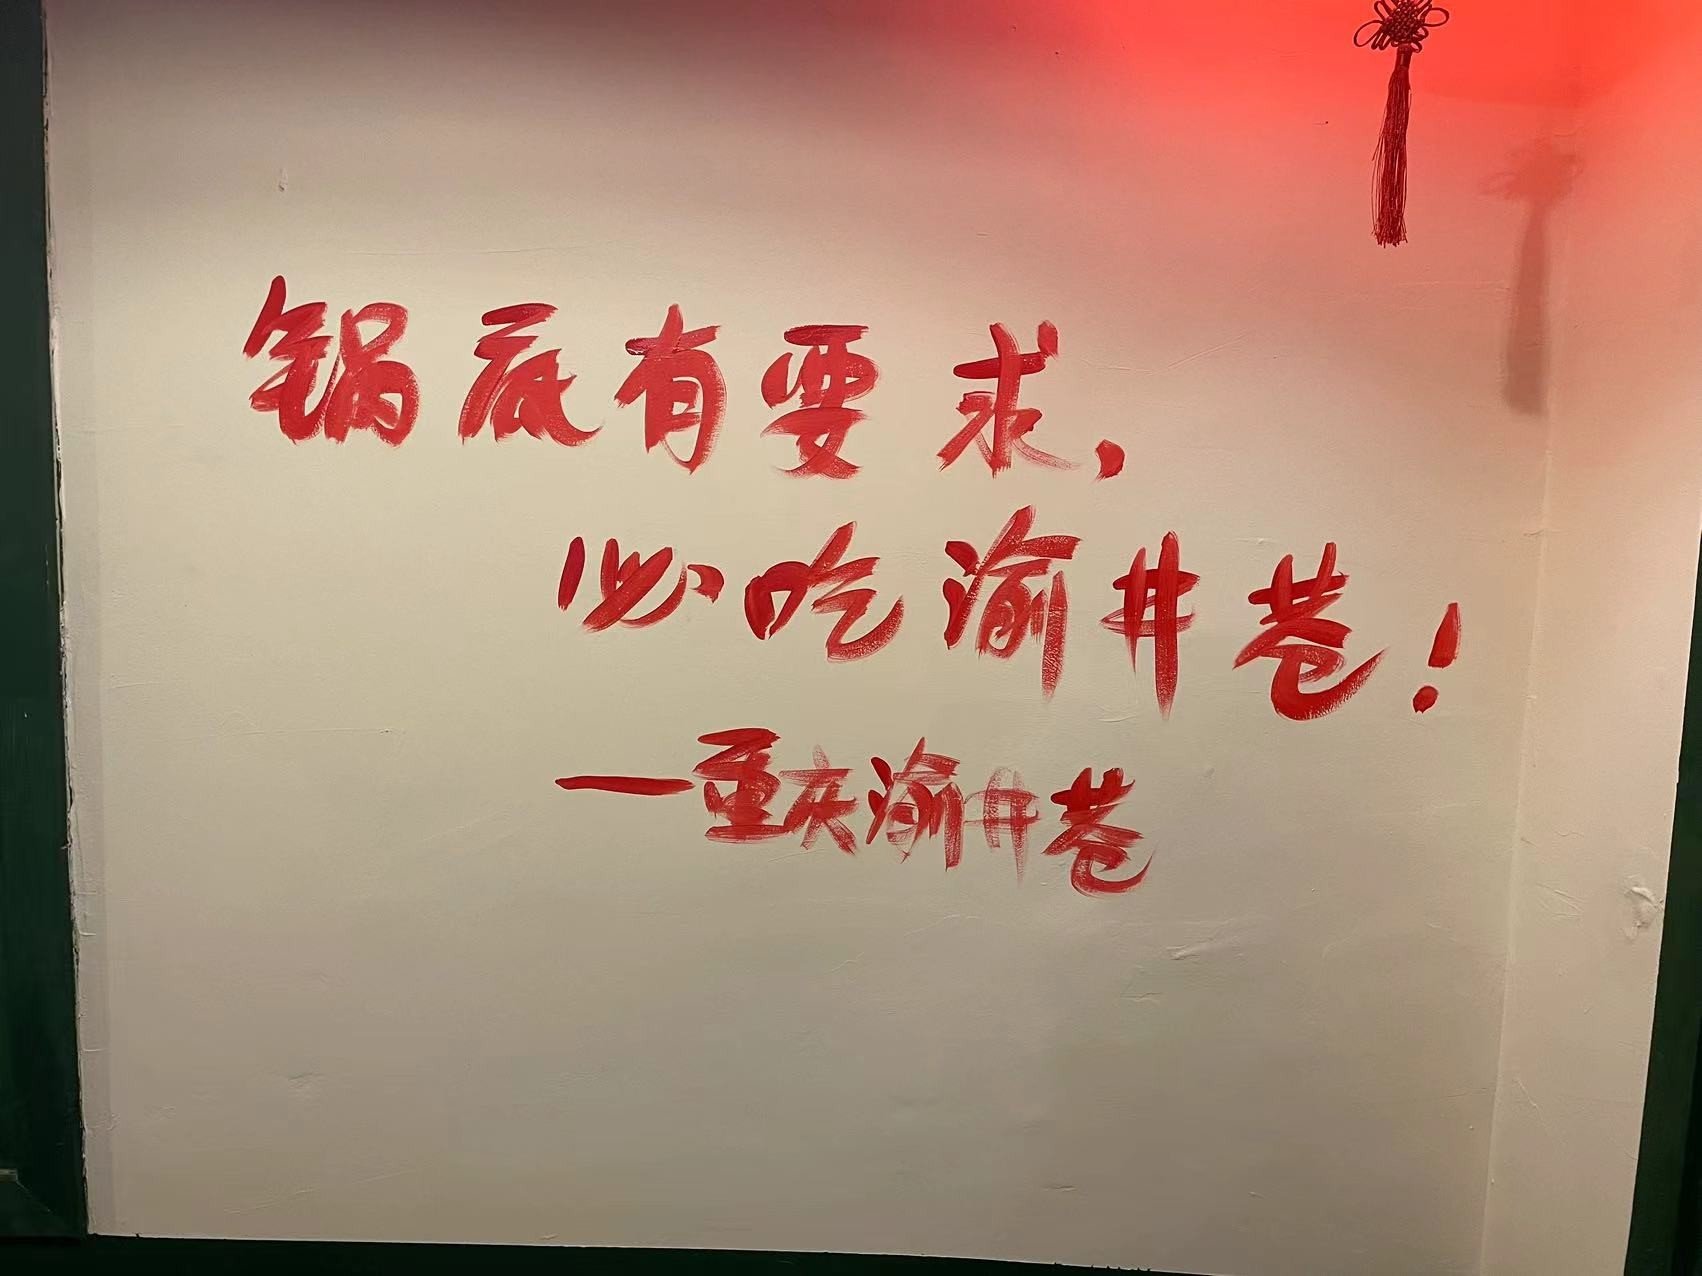 锅底有要求，
必吃渝井巷！
一重庆渝井巷